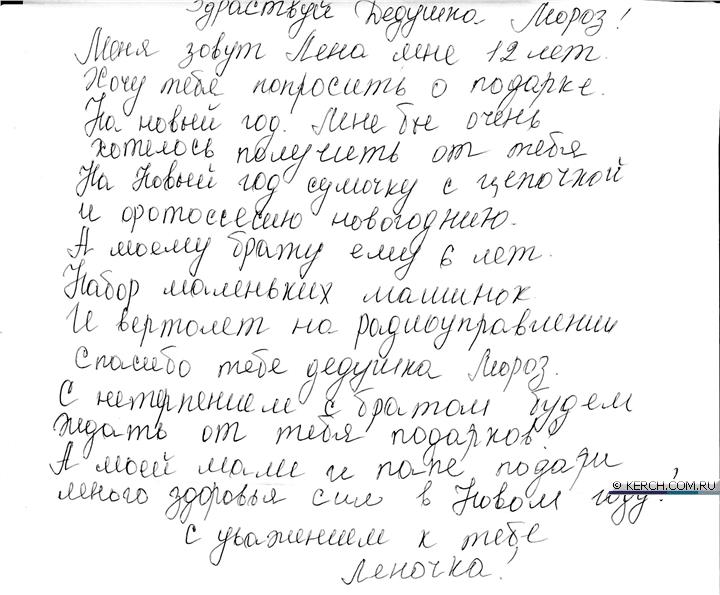 Здраствуй Дедушка Мороз!
Меня зовут Лена мне 12 лет.
Хочу тебя попросить о подарке.
На новый год. Мне бы очень
хотелось получить от тебя
На Новый год сумочку с цепочкой
и фотоссесию новогоднию.
А моему брату ему 6 лет.
Набор маленьких машинок
И вертолет на радиоуправлении
Спасибо тебе дедушка Мороз.
С нетерпением с братом будем
Ждать от тебя подарков
А моей маме и папе подари
много здоровья сил в Новом году!
© KERCH.COM.RU
с уважением к тебе
Леночка!